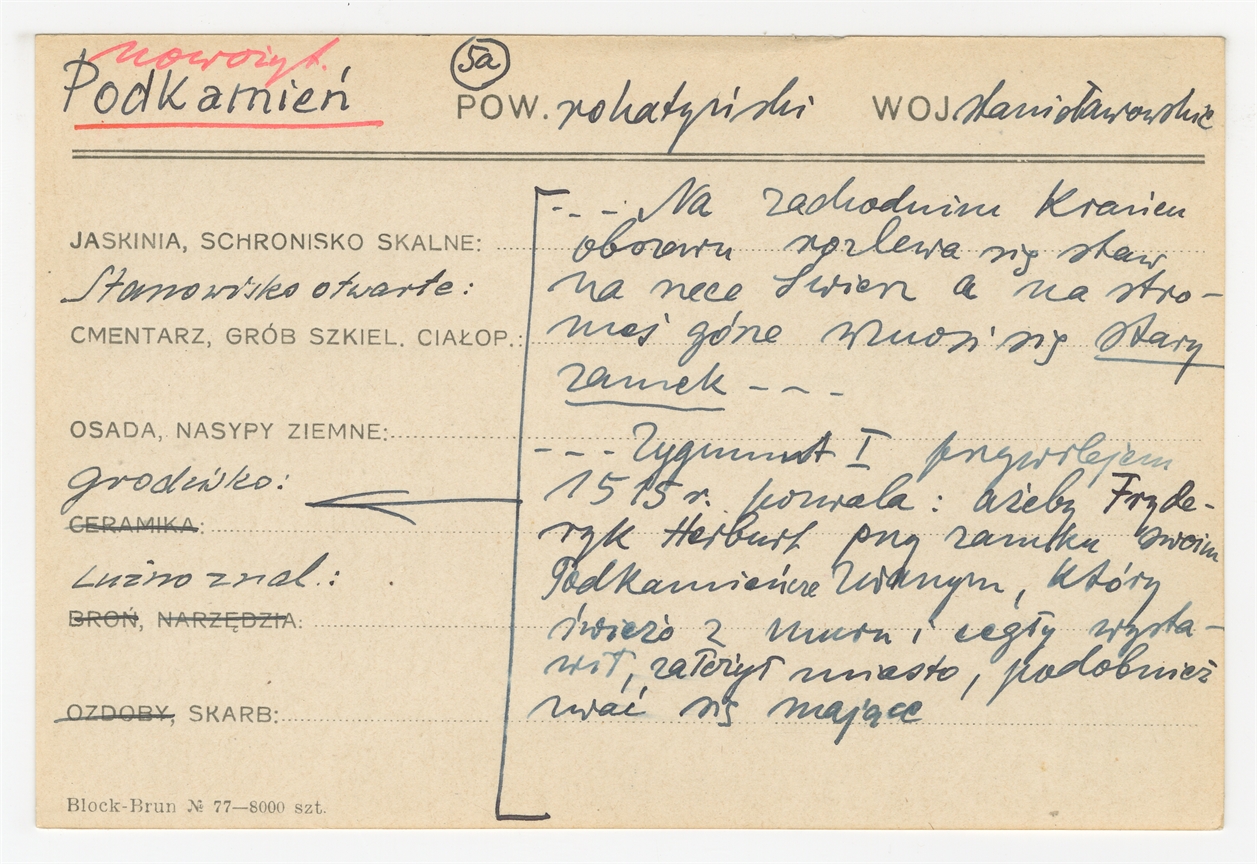 nowożyt.
5a
Podkamień POW. rohatyński WOJ. stanisławowskie
- - - Na zachodnim krańcu
JASKINIA, SCHRONISKO SKALNE:
obszaru rozlewa się staw
Stanowisko otwarte:
na rzece Świerz a na stro-
CMENTARZ, GRÓB SZKIEL. CIAŁOP.:
mej górze wznosi się stary
zamek - - -
OSADA, NASYPY ZIEMNE:
- - - Zygmunt I przywilejem
grodzisko:
1515 r. pozwala: ażeby Fryde-
CERAMIKA:
ryk Herburt przy zamku swoim
Luźno znal.:
Podkamieńcze zwanym, który
BROŃ, NARZĘDZIA:
świeżo z muru i cegły wysta-
wił, założył miasto, podobnież
OZDOBY, SKARB:
zwać się mające
Block-Brun № 77—8000 szt.